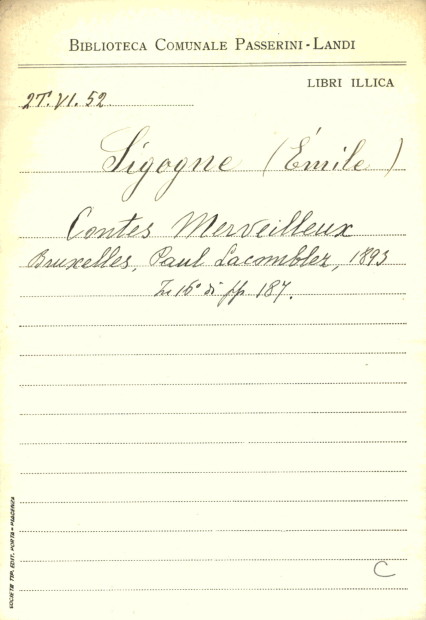 BIBLIOTECA COMUNALE PASSERINI-LANDI
LIBRI ILLICA
2T.VI.52
Sigogne (Émile)
Contes Merveilleux
Bruxelles, Paul Lacomblez, 1893
In 16° di pp 187.
SOCIETÀ TIP. EDIT. PORTA - PIACENZA
C